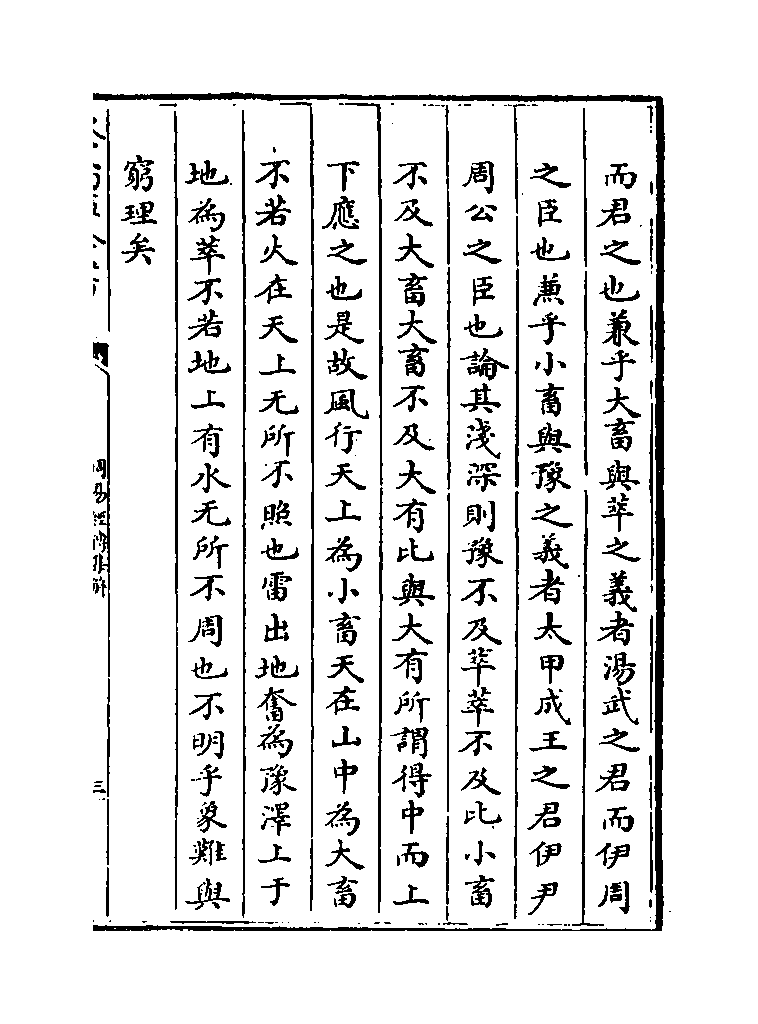 而君之也兼乎大畜與萃之義者湯武之君而伊周
之臣也兼乎小畜與豫之義者太甲成王之君伊尹
周公之臣也論其淺深則豫不及萃萃不及比小畜
不及大畜大畜不及大有比與大有所謂得中而上
下應之也是故風行天上為小畜天在山中為大畜
不若火在天上无所不照也雷出地奮為豫澤上于
地為萃不若地上有水无所不周也不明乎象難與
窮理矣
三